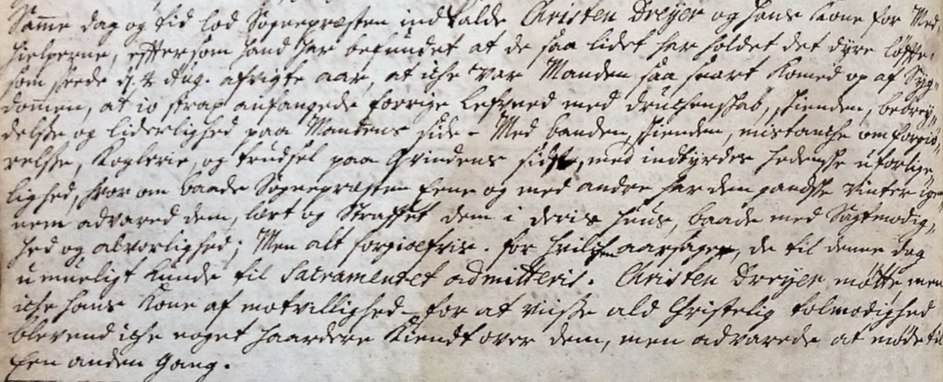 Samme dag og tid lod Sognepræsten indkalde Christen Dreyer og hans Kone for Med,,
hielperne, eftersom hand har befundet at de saa lidet har holdet det dyre løffte,
som skeede d. 4 Aug. afvigte aar, at iche var Manden saa snart kommed op af Syg,,
dommen, at io strax anfangede forrige lefned med druchenskab, skienden, bedrey,,
delse og liderlighed paa Mandens side - Med banden, skienden, mistanche om forgiv,,
velse, Koglerie, og trudsel paa Qvindens side, med indbyrdes hedenske uforlige,,
lighed, hvor om baade Sognepræsten eene og med andre har dem gandske Vinter igen
nem advared dem, lært og Straffet dem i deris huus, baade med Sagtmodig,,
hed og alvorlighed; Men alt forgiæfvis. for hvilchen aarsager, de til denne dag
umueligt kunde til Sacramentet admitteris. Christen Dreyer mødte, men
iche hans Kone af motvillighed - for at viisse ald Christelig tolmodighed
blevend iche noget haardere kiendt over dem, men advarede at møde til
Een anden gang.